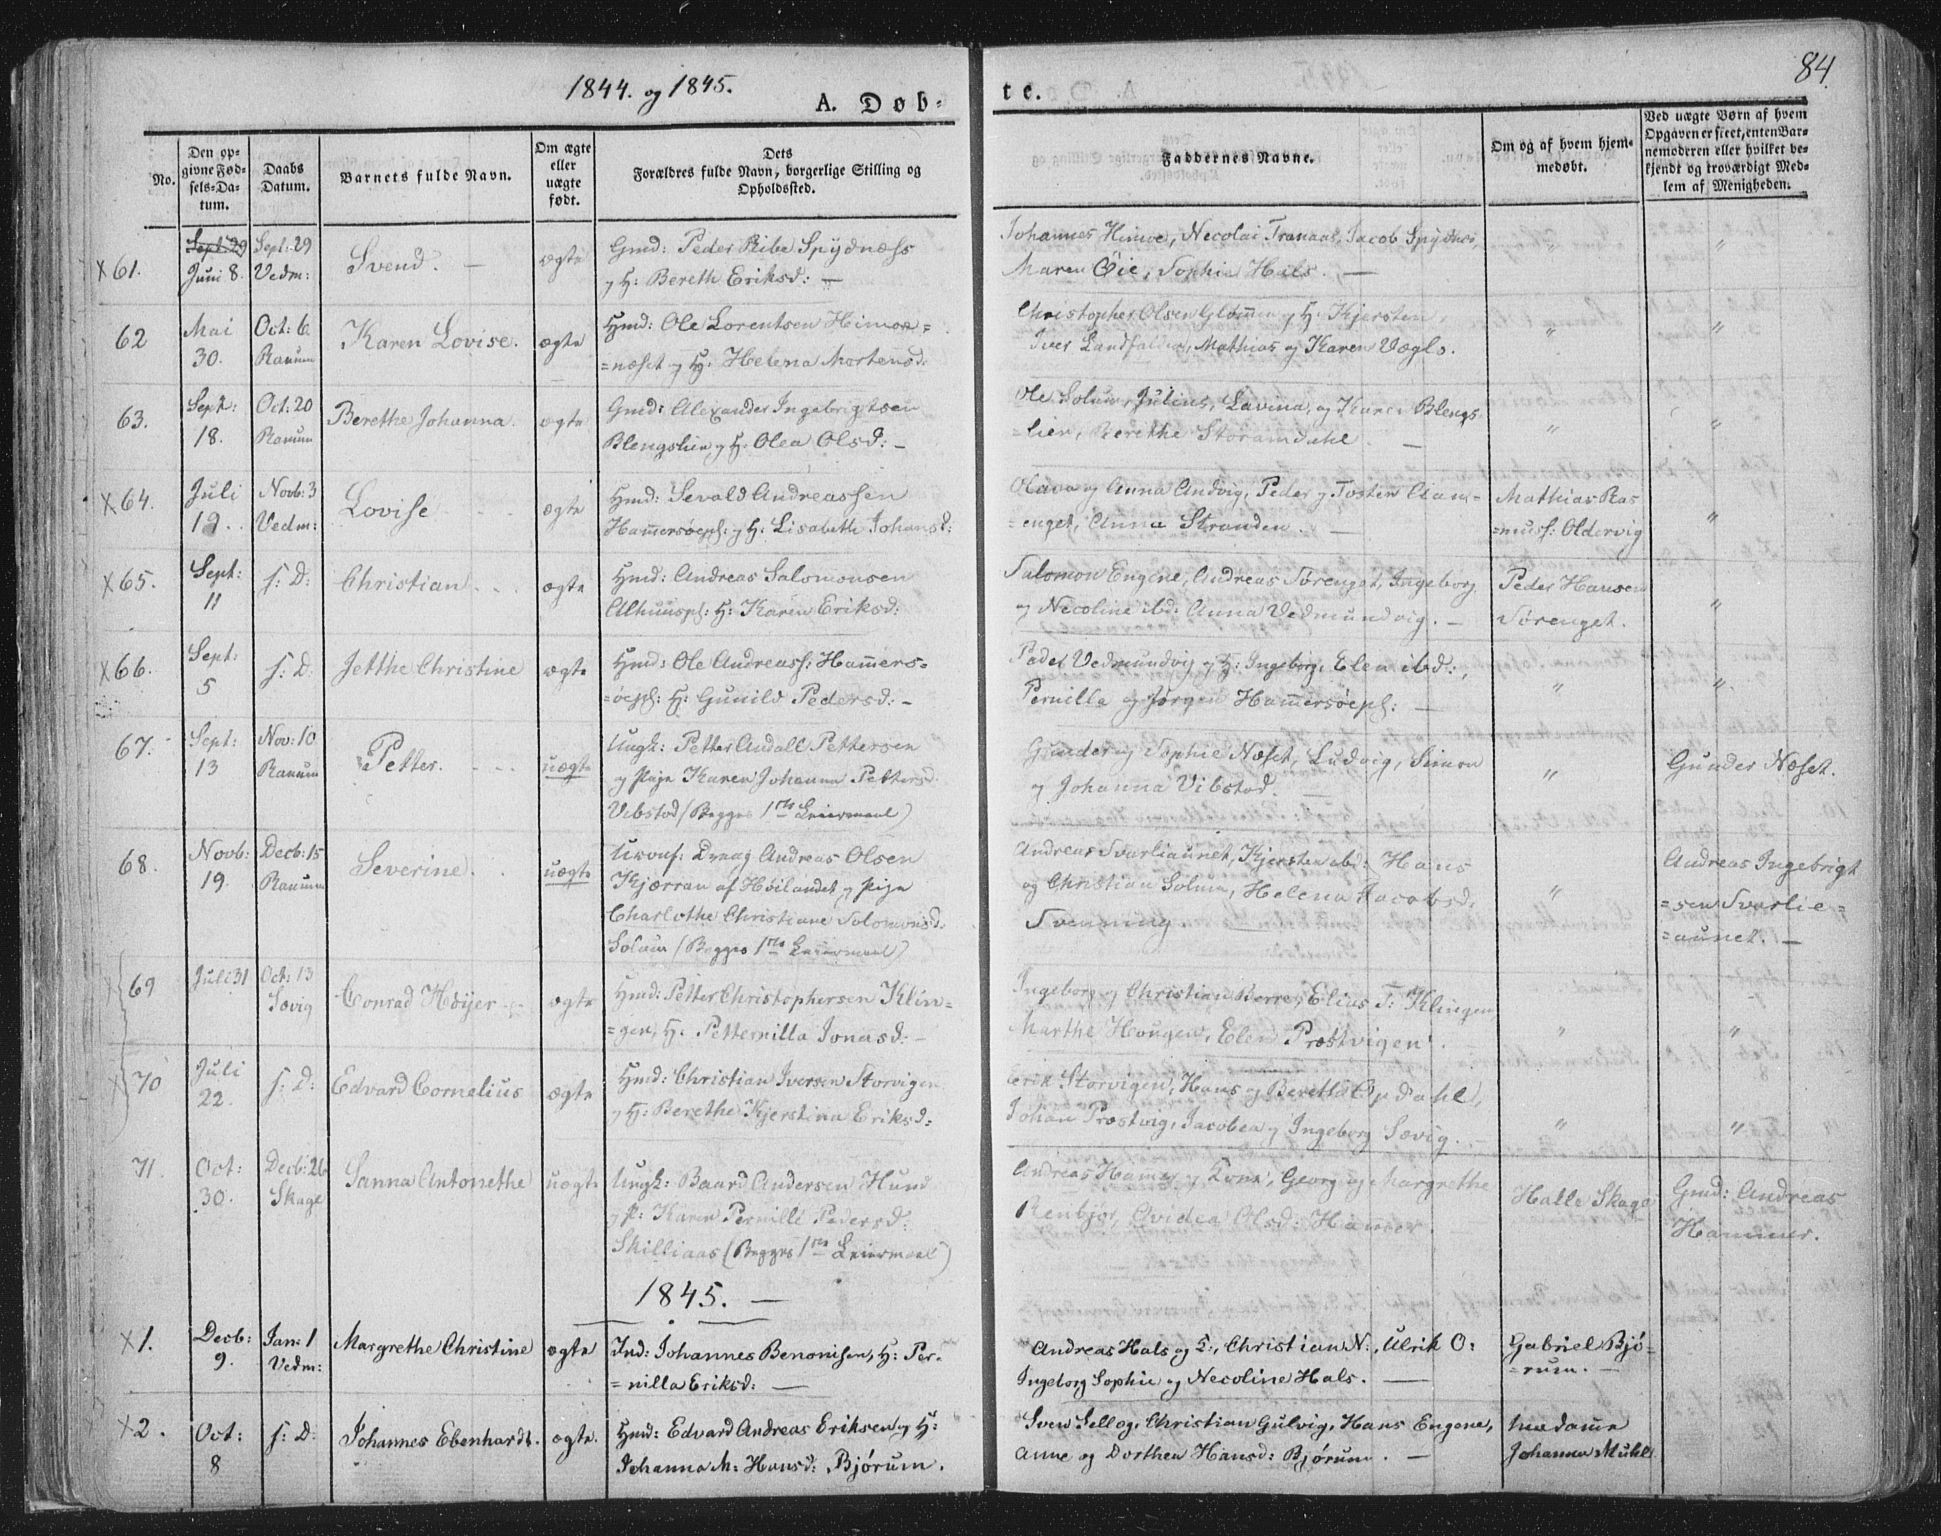 1844. og 1845.
84.
A. Døb-
te.
No.
Den op-
givne Fød-
sels-Da-
tum.
Daabs
Datum.
Barnets fulde Navn.
Om ægte
eller
uægte
født.
Dets
Forældres fulde Navn, borgerlige Stilling og
Opholdssted.
Faddernes Navne.
Om og af hvem hjem-
medøbt.
Ved uægte Børn af hvem
Opgaven er skeet, enten Bar-
nemoderen eller hvilket be-
kjendt og troværdigt Med-
lem af Menigheden.
x 61.
Sept 29
Juni 8.
Sept. 29
Vedm:
Svend. —
ægte
Gmd: Peder Ribe Spydnæss
og H: Bereth Eriksd: —
Johannes Himoe, Necolai Tranaas, Jacob Spydnæs,
Maren Øie, Sophie Hals. —
"
"
62
Mai
30.
Oct: 6.
Ranum
Karen Lovise.
ægte
Hmd: Ole Lorentsen Himoe=
=næset og H: Helena Mortensd:
Christopher Olsen Glømmen og H: Kjersten,
Iver Landfalden, Mathias og Karen Vægls.
"
"
63.
Sept:
18.
Oct: 20
Ranum
Berethe Johanna.
ægte
Gmd: Alexander Ingebrigtsen
Blengslien og H: Olea Olsd: —
Ole Solum, Julius, Lavina, og Karen Blengs
=lien, Berethe Storamdahl. —
"
"
x 64.
Juli
19.
Novb: 3
Vedm:
Lovise
ægte
Hmd: Sevald Andreassen
Hammersøepl: og H: Lisabeth Johansd:
Olava og Anna Andvig, Peder og Tosten Aam=
=enget, Anna Stranden. —
Mathias Ras
=muss: Oldervig
"
x 65.
Sept:
11
s: D:
Christian
ægte
Hmd: Andreas Salomonsen
Alhuuspl: H: Karen Eriksd:
Salomon Engene, Andreas Sørenget, Ingeborg
og Necoline ibd: Anna Vedmundvig. —
Peder Hansen
Sørenget.
"
x 66.
Sept:
5
s: D:
Jetthe Christine
ægte
Hmd: Ole Andreass: Hammers=
=øepl: H: Gunild Pedersd: —
Peder Vedmundvig og H: Ingeborg, Elen ibd:,
Pernilla og Jørgen Hammersøepl: —
"
"
67.
Sept:
13
Nov: 10
Ranum
Petter.
uægte
Ungk: Petter Andall Pettersen
og Pige Karen Johanna Pettersd.
Vibstad (Begges 1ste Leiermaal)
Gunder og Sophie Næset, Ludvig, Simon
og Johanna Vibstad. —
"
Gunder Næset.
68.
Novb:
19.
Decb: 15
Ranum
Severine.
uægte
Andreas Olsen
Kjærran af Høilandet og Pige
Charlothe Christiane Solomonsd.
Solum (Begges 1ste Leiermaal)
Andreas Svarliaunet, Kjersten ibd: Hans
og Christian Solum, Helena Jacobsd.
Svenning.
"
Andreas Ingebrigt
=sen Svarlie=
=aunet. —
69
Juli 31
Oct: 13
Sævig
Conrad Høyer
ægte
Hmd: Petter Christophersen Klin=
=gen, H: Petternilla Jonasd: —
Ingeborg og Christian Berre, Elius T: Klingen
Marthe Hougen, Elen Præstvigen.
"
"
70
Juli
22.
s: D:
Edvard Cornelius
ægte
Hmd: Christian Iversen Storvigen
og H: Berethe Kjerstina Eriksd:
Erik Storvigen, Hans og Berette Opdahl,
Johan Præstvig, Jacobea og Ingeborg Sævig.
"
"
71.
Oct:
30.
Decb: 26
Skage
Sanna Antonethe
uægte
Ungk: Baard Andersen Hund
og P: Karen Pernille Pedersd:
Skilliaas (Begges 1ste Leiermaal)
Andreas Hamer og Kone, Georg og Margrethe
Renbjør, Ovidea Olsd: Hamer.
Halle Skage
Gmd: Andreas
Hammer.
1845. —
x 1.
Decb:
9.
Jan: 1
Vedm:
Margrethe Christine
ægte
Ind: Johannes Benonisen, H: Per=
=nilla Eriksd: —
Andreas Hals og K:, Christian N:, Ulrik O:
Ingeborg Sophie og Necoline Hals. —
Gabriel Bjø=
=rum. —
x 2.
Oct:
8
s: D:
Johannes Ebenhardt.
ægte.
Hmd: Edvard Andreas Eriksen og H:
Johanna M: Hansd: Bjørum.
Sven Selløg, Christian Gulvig, Hans Engene,
Anne og Dorthea Hansd: Bjørum. —
Madame
Johanna Muhl